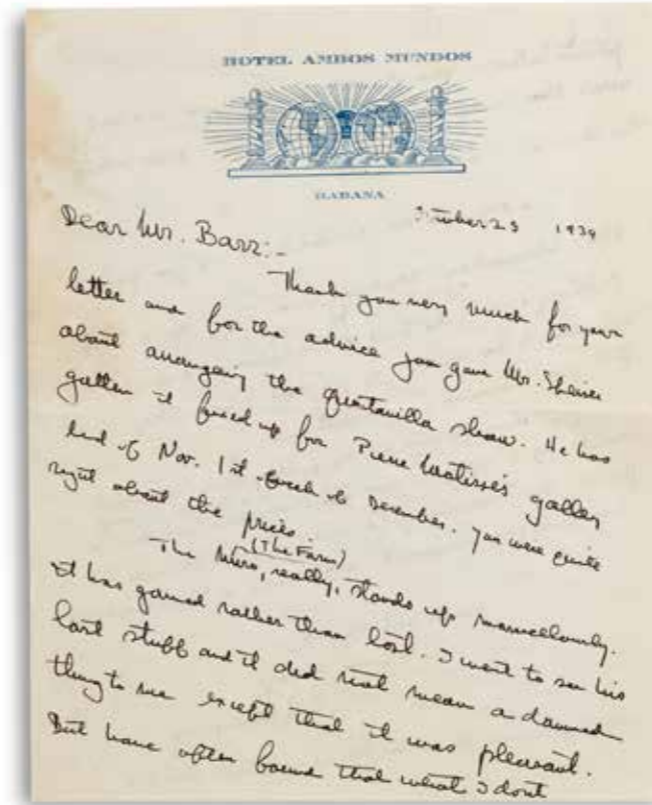 HOTEL AMBOS MUNDOS
HABANA
October 23 1934
Dear Mr. Barr:-
Thank you very much for your
letter and for the advice you gave Mr.
about arranging the Quintanilla show. He has
gotten it fixed up for Pierre Matisse's gallery
end of Nov. 1st week of December. You were quite
right about the prices.
(The Farm)
The Miro, really, stands up marvellously.
It has gained rather than lost. I went to see his
last stuff and it did not mean a damned
thing to me except that it was pleasant.
But have often found that what I dont